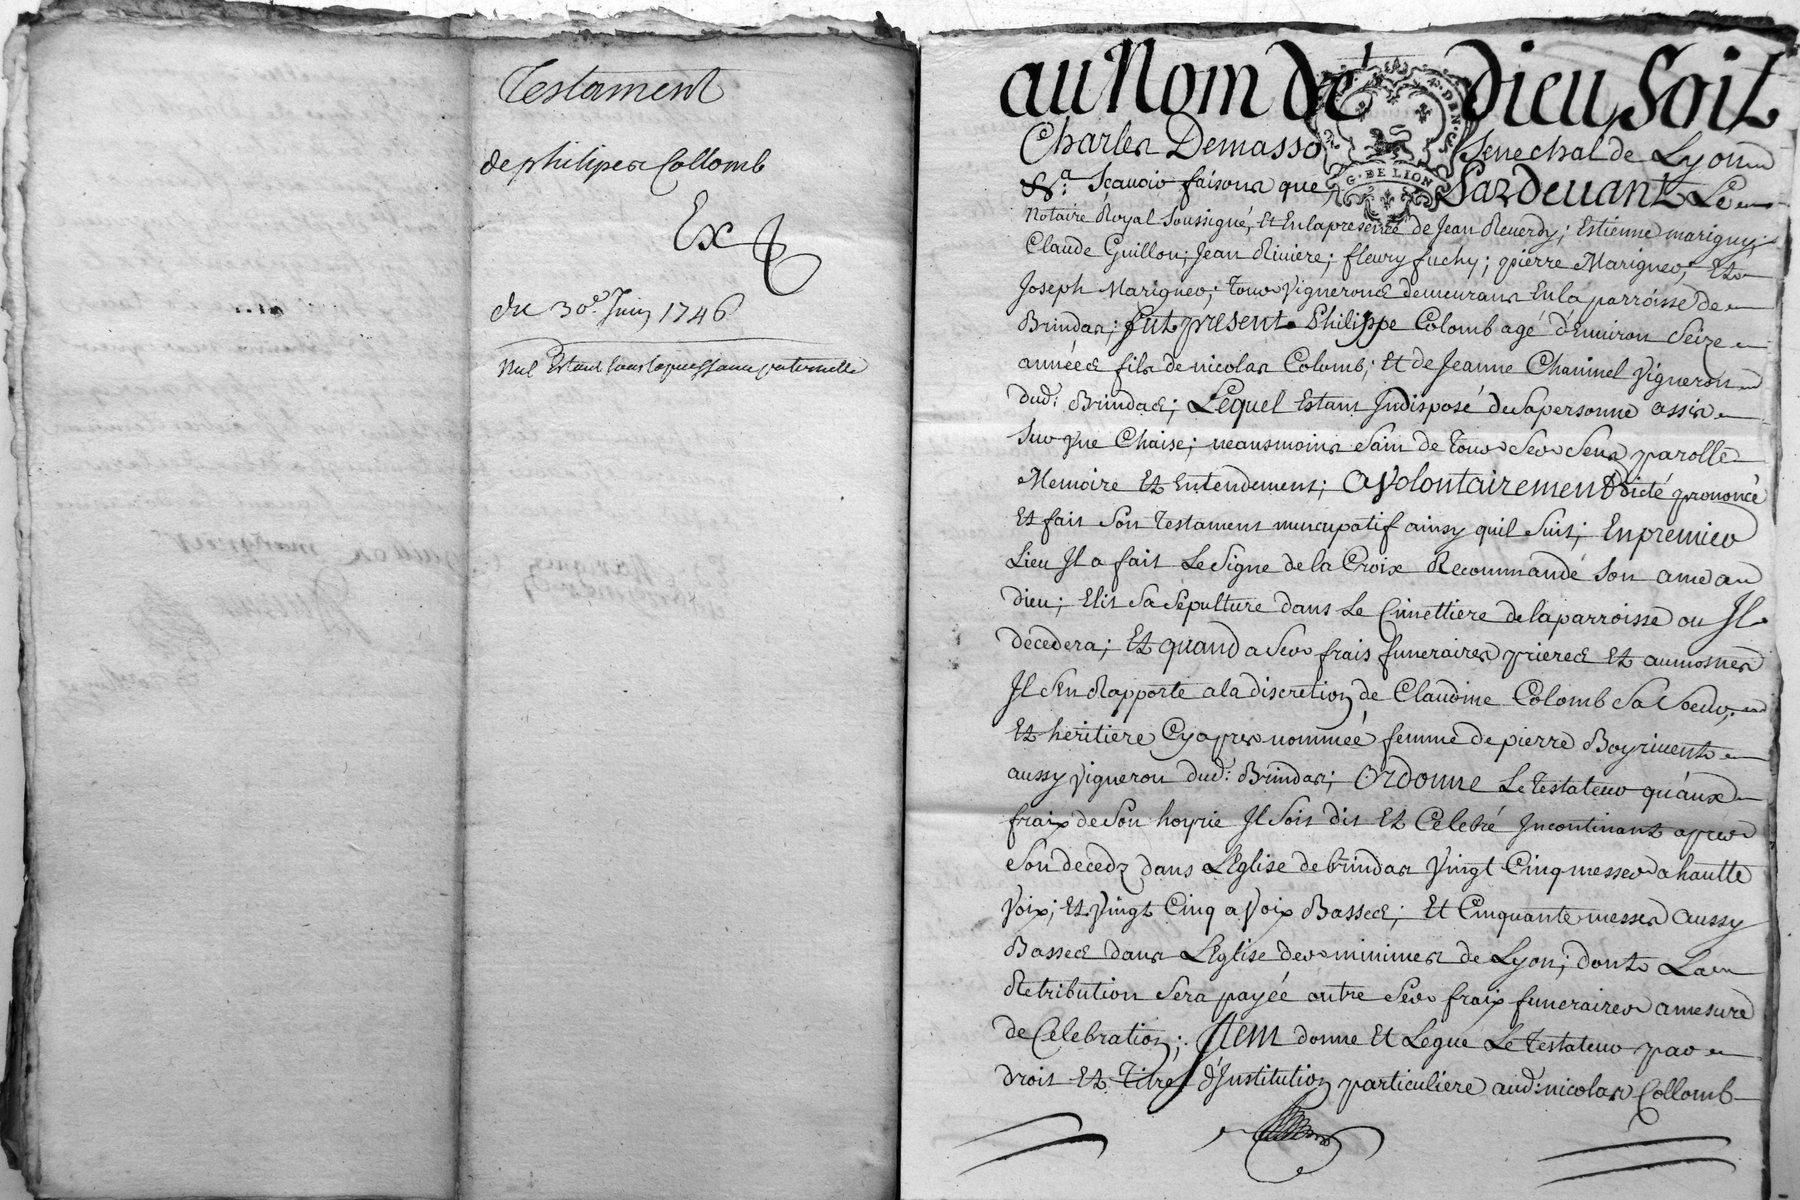 Testament
de philipes Collomb
Ex
du 30e. Juin 1746
Nul Estant sous la puissance paternelle
au Nom de dieu Soit
Charles Demasso Senechal de Lyon
&a. Scavoir faisons que Pardevant Le
Notaire Royal Soussigné, Et En la presence de Jean Reverdy; Estienne marigny;
Claude Guillon; Jean Riviere; fleury fuchy; pierre Marigner; Et
Joseph Marigner; tous vignerons demeurans En la parroisse de
Brindas; fut present Philippe Colomb agé d'Environ Seize
années fils de nicolas Colomb; Et de Jeanne Chaninel vigneron
dud: Brindas; Lequel Estant Indisposé de Sa personne assis
Sur vne Chaise; neansmoins Sain de tous Ses Sens parolle
Memoire Et Entendement; a volontairement dicté prononcé
Et fait Son testament nuncupatif ainsy quil Suit; En premier
Lieu Il a fait Le Signe de la Croix Recommandé Son ame au
dieu; Elit Sa Sepulture dans Le Cimettiere de la parroisse ou Il
decedera; Et quand a Ses frais funeraires prieres Et aumosnes
Il S'En Rapporte a la discretion de Claudine Colomb Sa Soeur,
Et heritiere Cy apres nommée femme de pierre Boyrivent
aussy vigneron dud: Brindas; Ordonne Le testateur qu'aux
fraix de Son hoyrie Il Soit dit Et Celebré Incontinant apres
Son decedz dans L'Eglise de brindas vingt Cinq messes a hautte
voix; Et vingt Cinq a voix Basse; Et Cinquante messes aussy
Basses dans L'Eglise des minimes de Lyon; dont La
Retribution Sera payée outre Ses fraix funeraires a mesure
de Celebration; Item donne Et Legue Le testateur par
droit Et titre d'Institution particuliere aud: nicolas Collomb